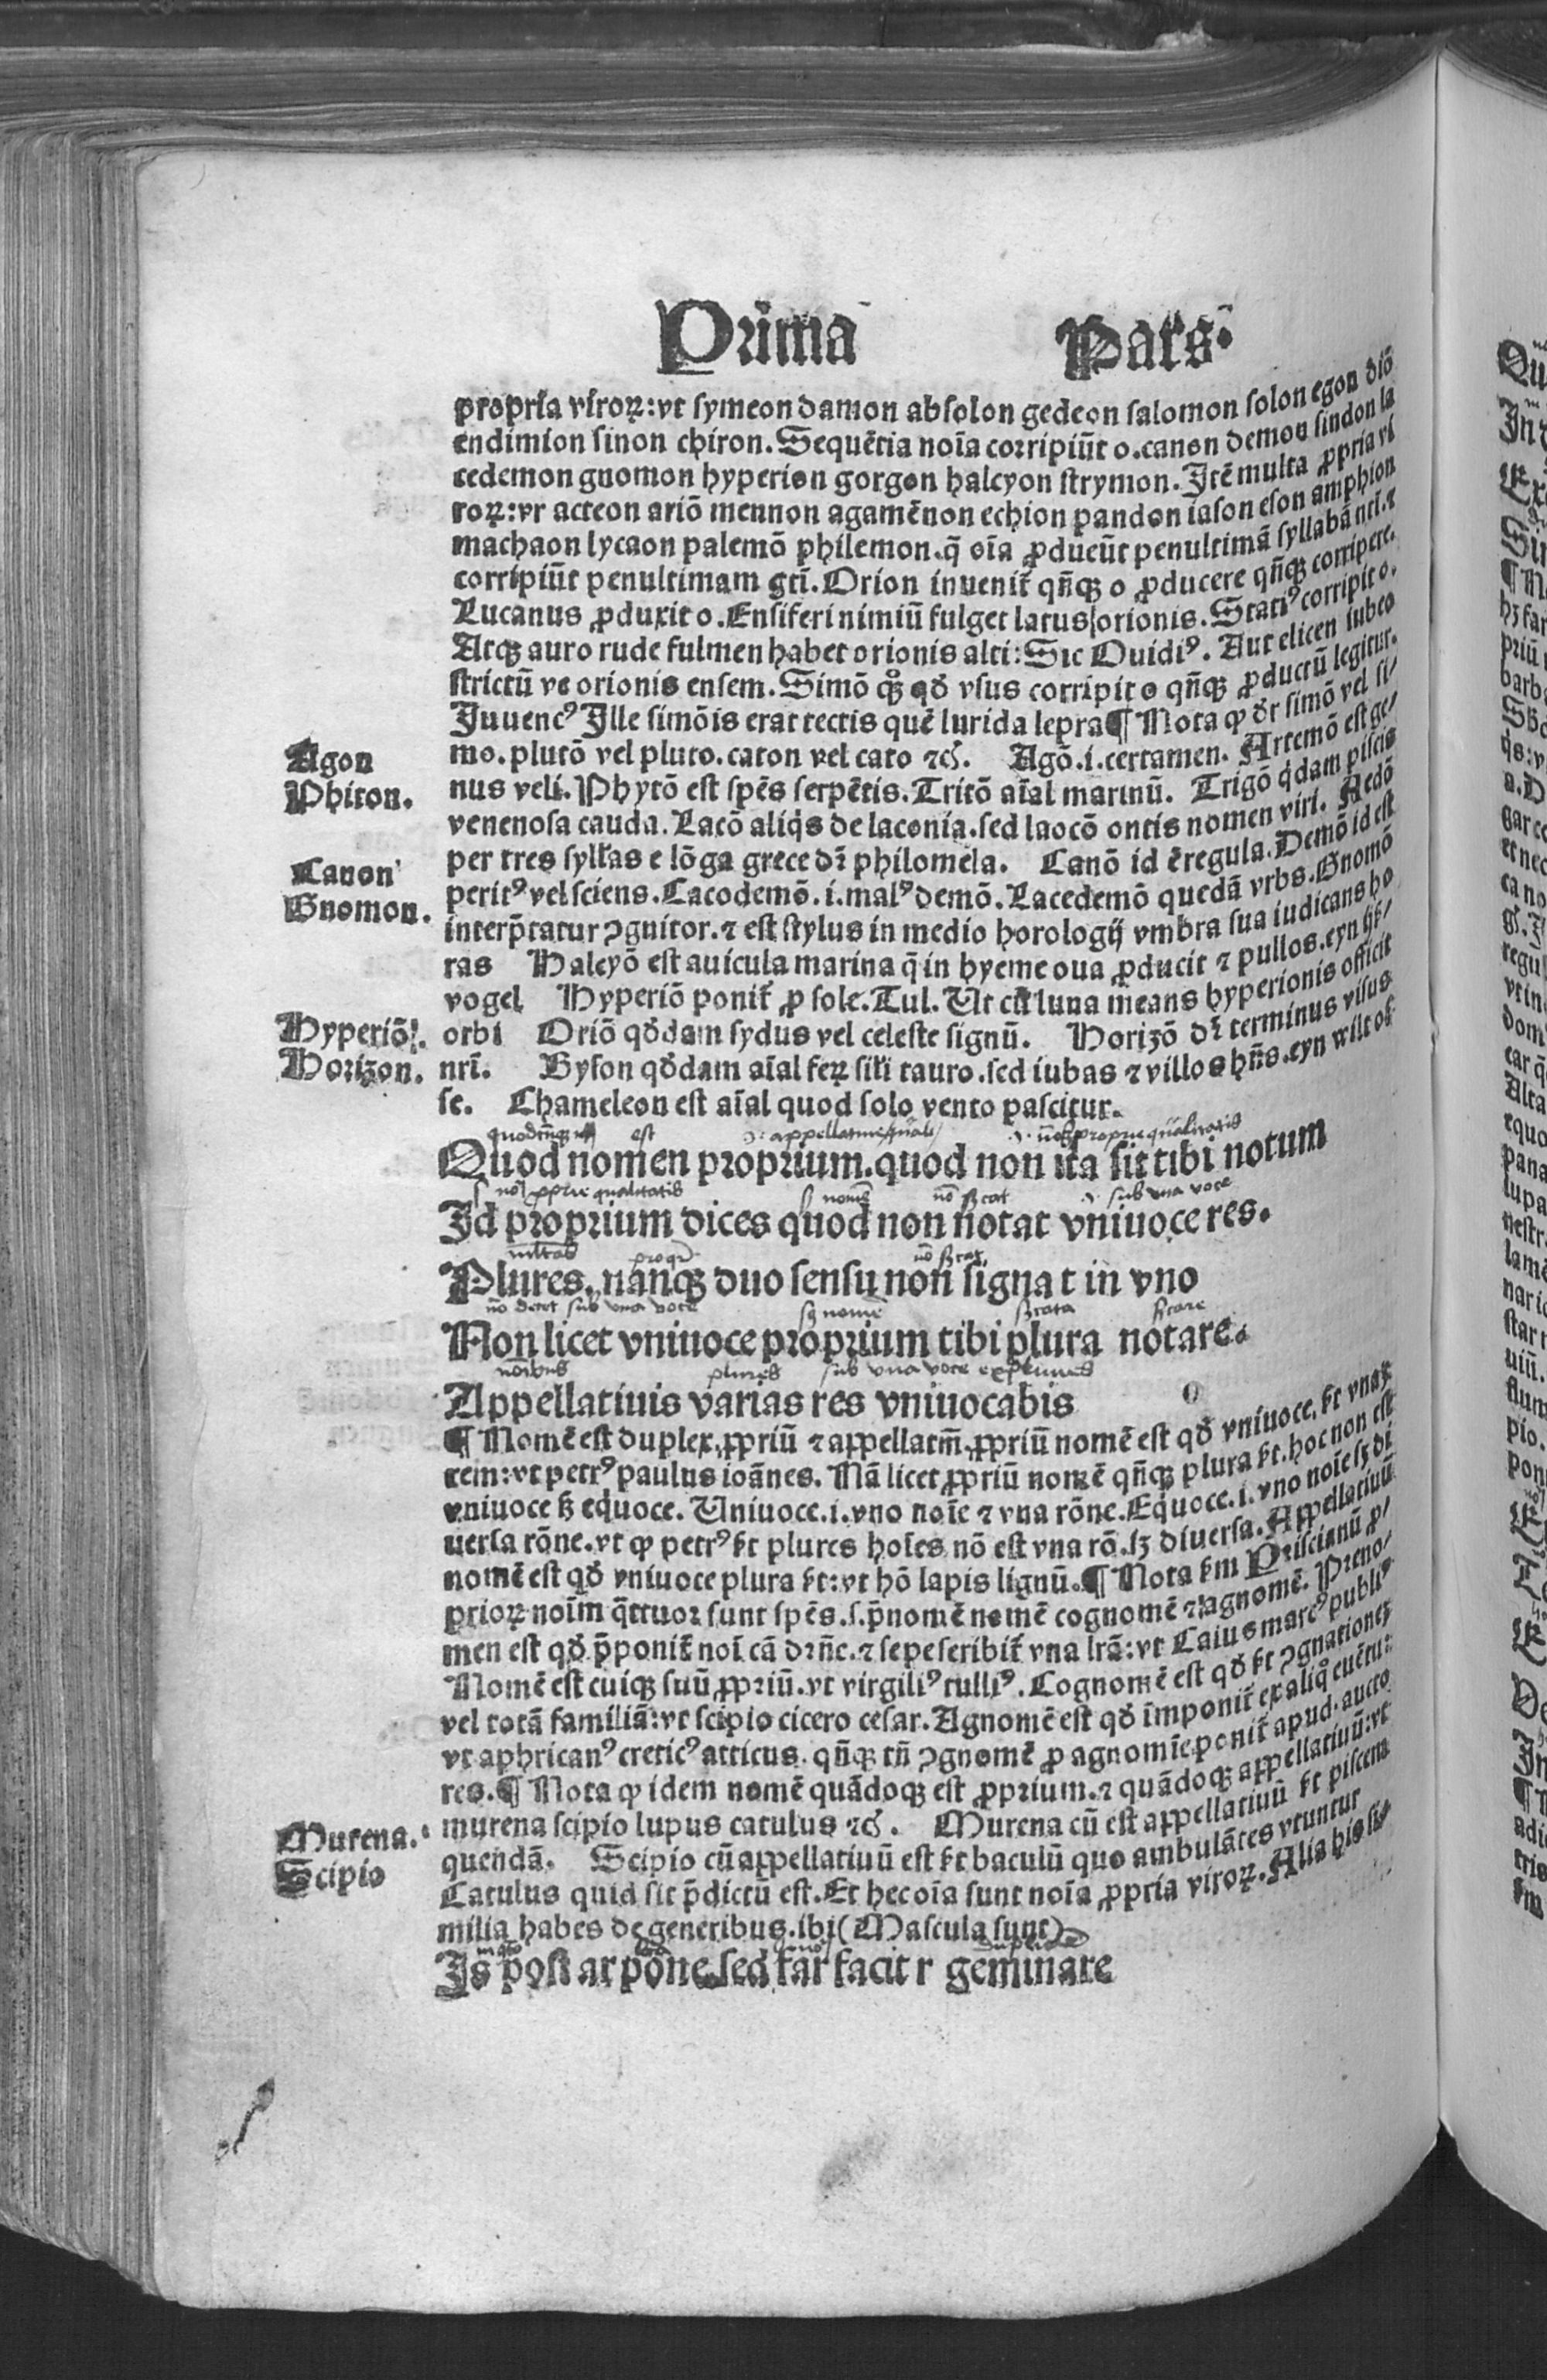 Prima Pars.
propria viroꝝ: vt symeon damon absolon gedeon salomon solon egon diō
endimion sinon chiron. Sequētia noīa corripiūt o. canon demon sindon la
cedemon gnomon hyperion gorgon halcyon strymon. Itē multa ꝓpria vi
roꝝ: vt acteon ariō mennon agamēnon echion pandon iason eson amphion
machaon lycaon palemō philemon. q̄ oīa ꝓducūt penultimā syllabā nti. ⁊
corripiūt penultimam gti. Orion inuenit̄ qn̄qꝫ o ꝓducere qn̄qꝫ corripere.
Lucanus ꝓduxit o. Ensiferi nimiū fulget latus orionis. Statiꝰ corripit o.
Atqꝫ auro rude fulmen habet orionis alti: Sic Ouidiꝰ. Aut elicen iubeo
strictū ve orionis ensem. Simō qꝫ qđ vsus corripit o qn̄qꝫ ꝓductū legitur.
Iuuencꝰ Ille simōis erat tectis quē lurida lepra ¶ Nota ꝙ dr̄ simō vel si/
mo. plutō vel pluto. caton vel cato ⁊c̄. Agō .i. certamen. Artemō est ge/
nus veli. Phytō est spēs serpētis. Tritō aīal marinū. Trigō q̇dam piscis
venenosa cauda. Lacō aliq̇s de laconia. sed laocō ontis nomen viri. Aedō
per tres syllᷓas e lōga grece dr̄ philomela. Canō id ē regula. Demō id est
peritꝰ vel sciens. Cacodemō. i. malꝰ demō. Lacedemō quedā vrbs. Gnomō
interp̄tatur ꝯgnitor. ⁊ est stylus in medio horologij vmbra sua iudicans ho
ras Halcyō est auicula marina q̄ in hyeme oua ꝓducit ⁊ pullos. eyn ijß/
vogel Hyperiō ponit̄ ꝓ sole. Tul. Ut cū luna means hyperionis officit
orbi Oriō qđdam sydus vel celeste signū. Horizō dr̄ terminus visus
nrī. Byson qđdam aīal feꝝ sil̄i tauro. sed iubas ⁊ villos hn̄s. eyn wilt oß
se. Chameleon est aīal quod solo vento pascitur.
Agon
Phiton.
Canon
Gnomon.
Hyperiō.
Horizon.
est
Quod nomen proprium. quod non ita sit tibi notum
sub vna voce
Id proprium dices quod non notat vniuoce res.
Plures. nanqꝫ duo sensu non signat in vno
sub vna voce
Non licet vniuoce proprium tibi plura notare.
plures sub vna voce
Appellatiuis varias res vniuocabis
¶ Nomē est duplex, ꝓpriū ⁊ appellatm̄. ꝓpriū nomē est qđ vniuoce. sͨt vnaꝫ
rem: vt petrꝰ paulus ioānes. Nā licet ꝓpriū nomē qn̄qꝫ plura sͨt. hoc non est
vniuoce sꝫ equoce. Uniuoce. i. vno noīe ⁊ vna rōne. Equoce. i. vno noīe sꝫ di
uersa rōne. vt ꝙ petrꝰ sͨt plures hoīes nō est vna rō. sꝫ diuersa. Appellatiuū
nomē est qđ vniuoce plura sͨt: vt hō lapis lignū. ¶ Nota sͨm Priscianū ꝓ/
prioꝝ noīm q̄ttuor sunt spēs. s. p̄nomē nomē cognomē ⁊ agnomē. Preno/
men est qđ p̄ponit̄ noī cā drn̄e. ⁊ sepe scribit̄ vna lrā: vt Caius marcꝰ publiꝰ
Nomē est cuiqꝫ suū ꝓpriū. vt virgiliꝰ tulliꝰ. Cognomē est qđ sͨt ꝯgnationeꝫ
vel totā familiā: vt scipio cicero cesar. Agnomē est qđ īmponit̄ ex aliq̊ euētu:
vt aphricanꝰ creticꝰ atticus. qn̄qꝫ tn̄ ꝯgnomē ꝓ agnomīe ponit̄ apud aucto
res. ¶ Nota ꝙ idem nomē quādoqꝫ est ꝓprium. ⁊ quādoqꝫ appellatiuū: vt
murena scipio lupus catulus ⁊c̄. Murena cū est appellatiuū sͨt piscem
quendā. Scipio cū appellatiuū est sͨt baculū quo ambulātes vtuntur
Catulus quid sit p̄dictū est. Et hec oīa sunt noīa ꝓpria viroꝝ. Alia his si/
milia habes de generibus. ibi (Mascula sunt)
Murena.
Scipio
Is post ar pone. sed far facit r geminare